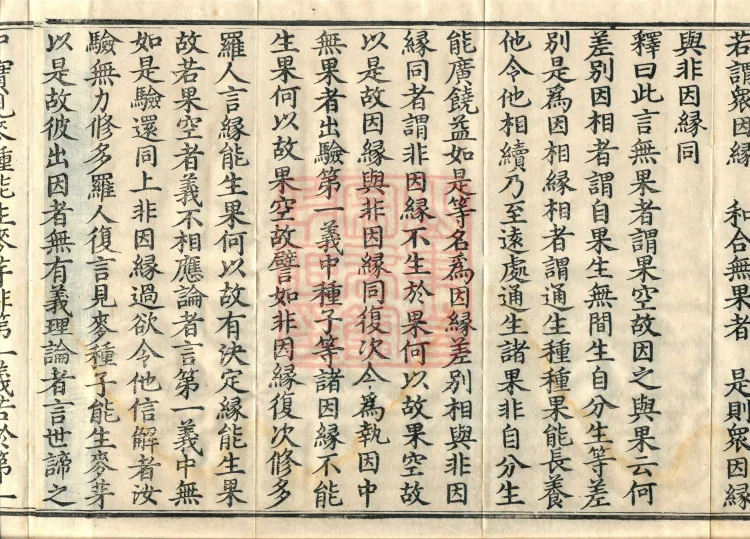 若謂衆因緣　和合無果者　是則衆因緣
與非因緣同
釋曰此言無果者謂果空故因之與果云何
差別因相者謂自果生無間生自分生等差
別是爲因相緣相者謂通生種種果能長養
他令他相續乃至遠處通生諸果非自分生
能廣饒益如是等名爲因緣差別相與非因
緣同者謂非因緣不生於果何以故果空故
以是故因緣與非因緣同復次今爲執因中
無果者出驗第一義中種子等諸因緣不能
生果何以故果空故譬如非因緣復次修多
羅人言緣能生果何以故有決定緣能生果
故若果空者義不相應論者言第一義中無
如是驗還同上非因緣過欲令他信解者汝
驗無力修多羅人復言見麥種子能生麥芽
以是故彼出因者無有義理論者言世諦之
中實見麥種能生麥芽非第一義若於第一